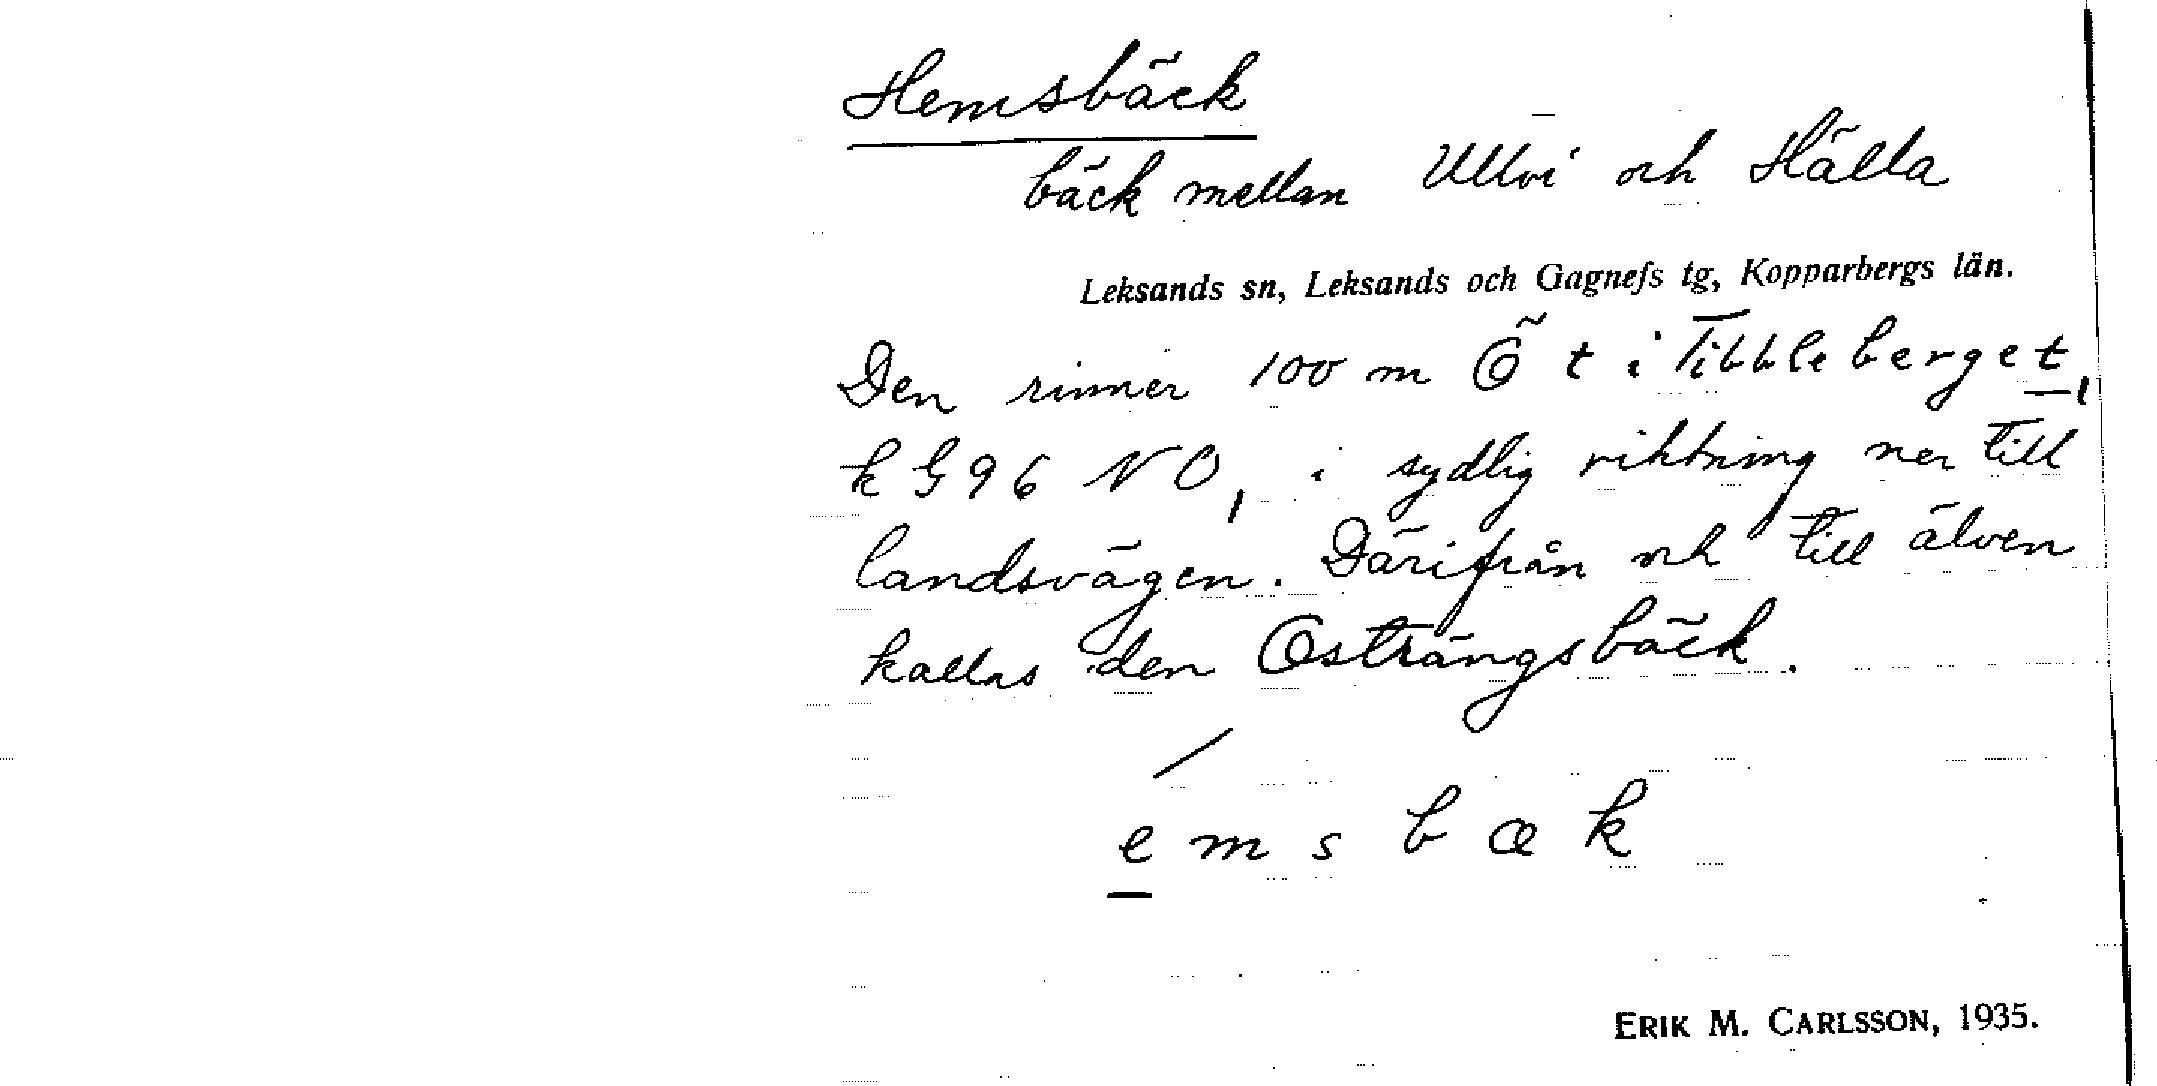 Hemsbäck
bäck mellan Ullvi och Hälla
Leksands sn, Leksands och Gagnefs tg, Kopparbergs län.
Den rinner 100 m Ö t i Tibbleberget,
k G 96 NO, i sydlig riktning ner till
landsvägen. Därifrån och till älven
kallas den Osträngsbäck.
/
e m s b æ k
ERIK M. CARLSSON, 1935.